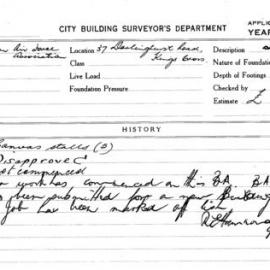 CITY BUILDING SURVEYOR'S DEPARTMENT
APPLIC
YEAR
Air
Association
Location 37 Darlinghurst Road,
Kings Cross.
Description
Class
Nature of Foundation
Live Load
Depth of Footings
Foundation Pressure
Checked by
Estimate £
HISTORY
Canvas stalls (3)
Disapproved
not commenced
work has commenced on this BA. BA
been submitted for a new Building
Job has been marked off